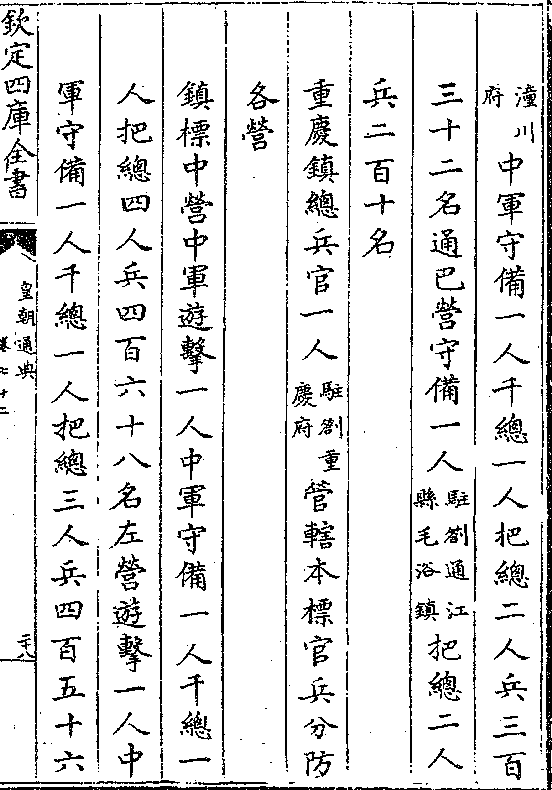 潼川府中軍守備一人千總一人把總二人兵三百
三十二名通巴營守備一人駐劄通江縣毛浴鎮把總二人
兵二百十名
重慶鎮總兵官一人駐劄重慶府管轄本標官兵分防
各營
鎮標中營中軍遊擊一人中軍守備一人千總一
人把總四人兵四百六十八名左營遊擊一人中
軍守備一人千總一人把總三人兵四百五十六
欽定四庫全書
皇朝通典
卷七十二
二十八